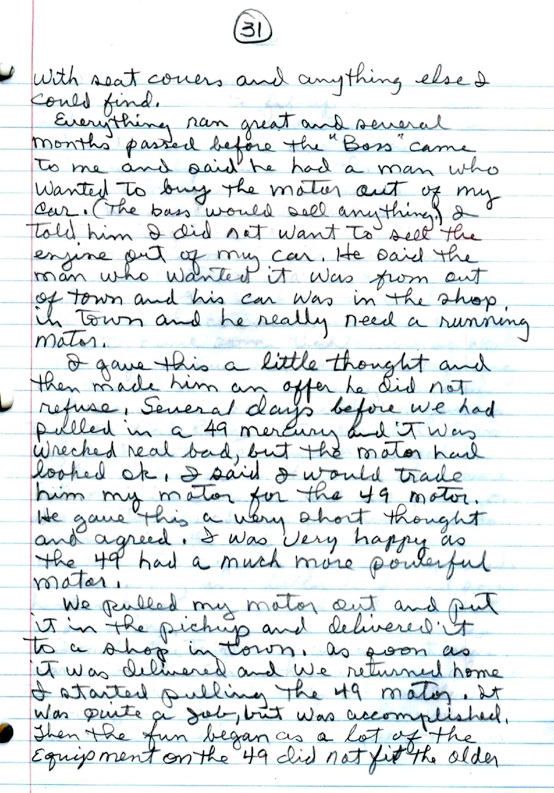 31
with seat covers and anything else I
could find.
Everything ran great and several
months passed before the "Boss" came
to me and said he had a man who
wanted to buy the motor out of my
car. (The boss would sell anything.) I
told him I did not want to sell the
engine out of my car. He said the
man who wanted it was from out
of town and his car was in the shop
in town and he really need a running
motor.
I gave this a little thought and
then made him an offer he did not
refuse. Several days before we had
pulled in a 49 mercury and it was
wrecked real bad, but the motor had
looked ok. I said I would trade
him my motor for the 49 motor.
He gave this a very short thought
and agreed. I was very happy as
the 49 had a much more powerful
motor.
We pulled my motor out and put
it in the pickup and delivered it
to a shop in town. as soon as
it was delivered and we returned home
I started pulling the 49 motor. It
was quite a job, but was accomplished.
Then the fun began as a lot of the
equipment on the 49 did not fit the older